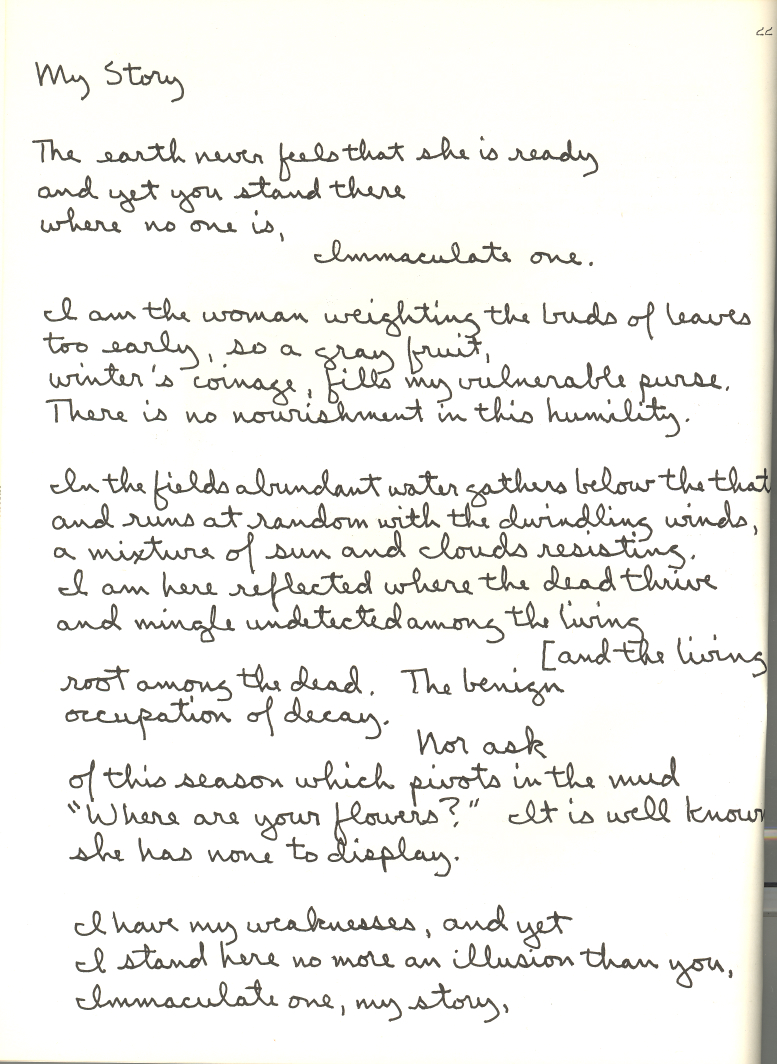 22
My Story
The earth never feels that she is ready
and yet you stand there
where no one is,
Immaculate one.
I am the woman weighting the buds of leaves
too early, so a gray fruit,
winter's coinage, fills my vulnerable purse.
There is no nourishment in this humility.
In the fields abundant water gathers below the that
and runs at random with the dwindling winds,
a mixture of sun and clouds resisting.
I am here reflected where the dead thrive
and mingle undetected among the living
[and the living
root among the dead. The benign
occupation of decay.
Nor ask
of this season which pivots in the mud
"Where are your flowers?" It is well known
she has none to display.
I have my weaknesses, and yet
I stand here no more an illusion than you,
Immaculate one, my story,